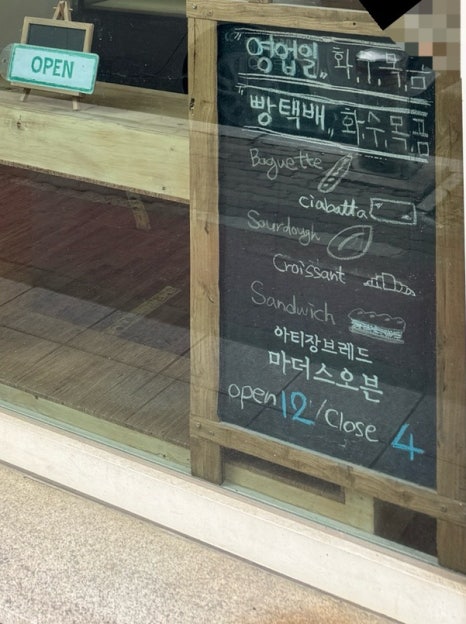 OPEN
"영업일" 화,수,목,금
"빵택배" 화,수,목,금
Baguette
ciabatta
Sourdough
Croissant
Sandwich
아티장브레드
마더스오븐
open 12/Close 4